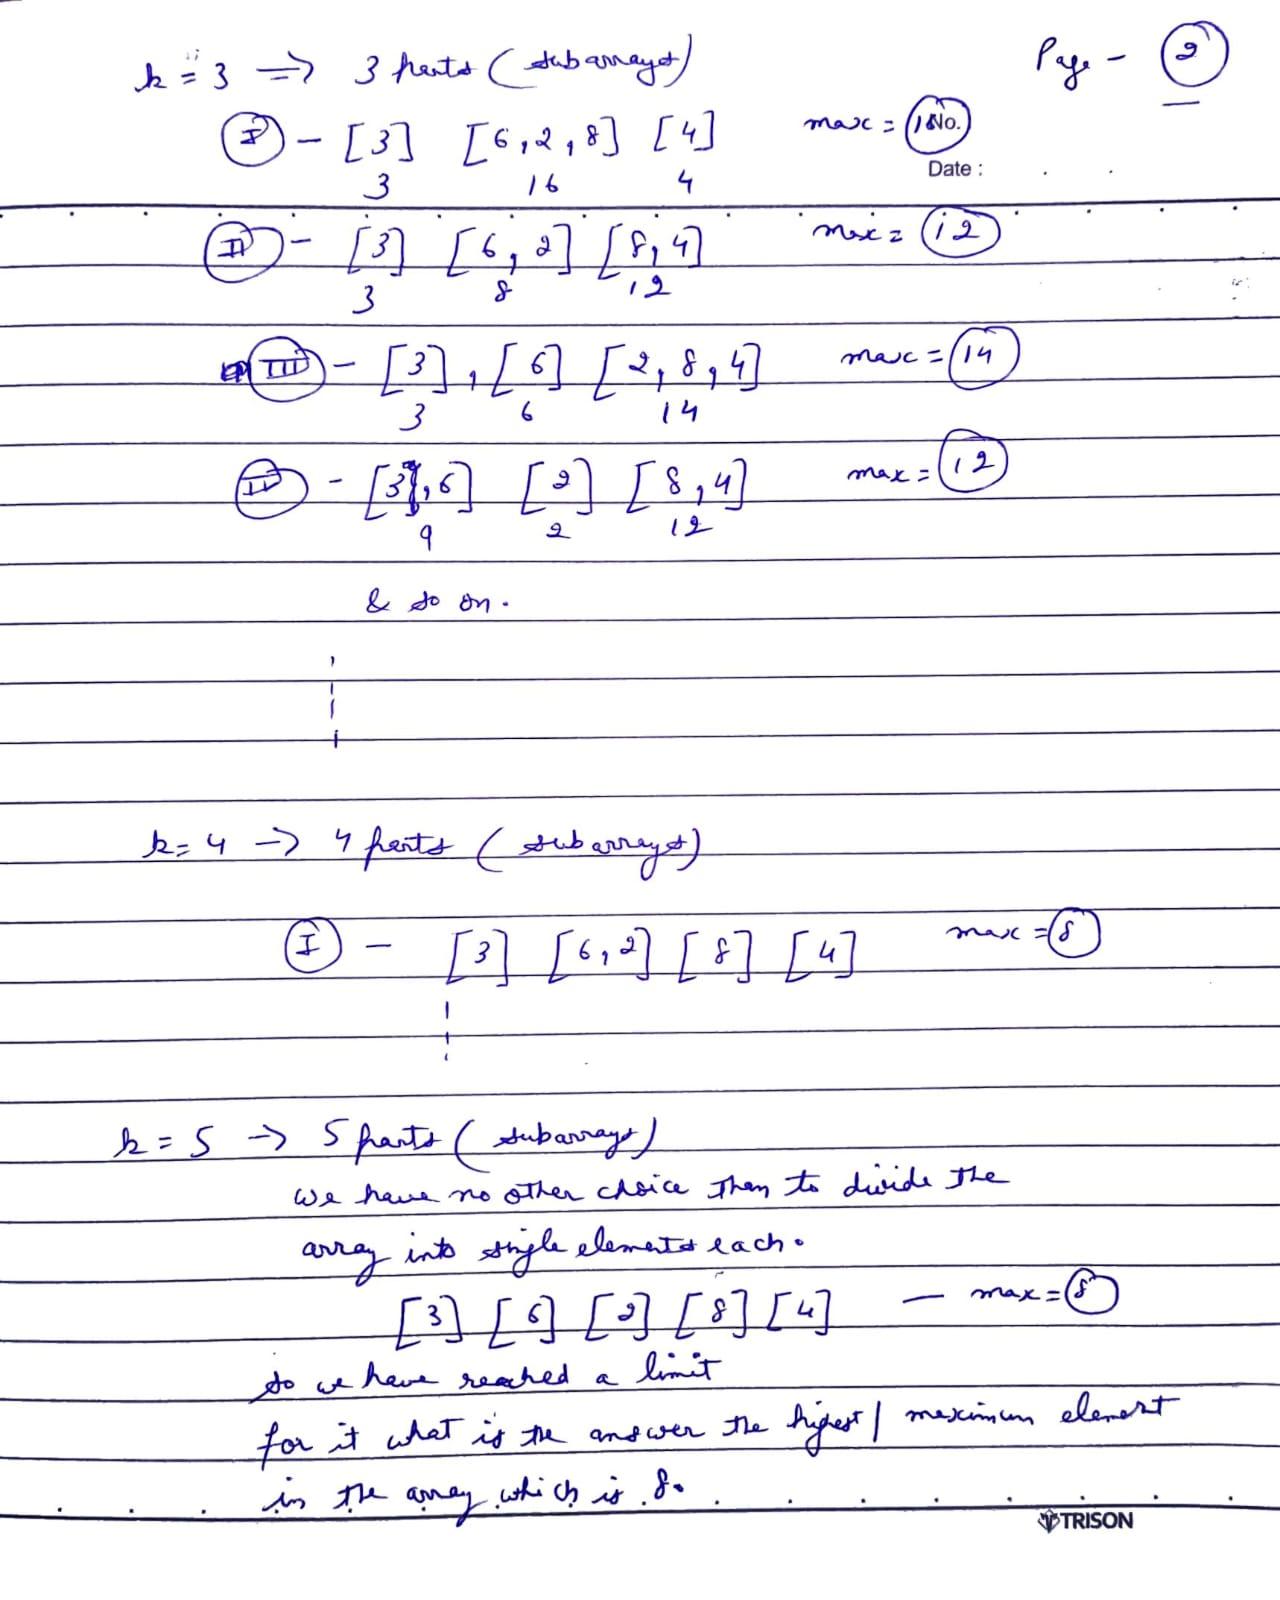 k = 3 => 3 parts (subarrays)
Page - 2
I - [3] [6,2,8] [4] max = No.
3 16 4
Date :
II - [3] [6,2] [8,4] max = 12
3 8 12
III - [3], [6] [2,8,4] max = 14
3 6 14
- [3,6] [2] [8,4] max = 12
9 2 12
& so on.
k = 4 -> 4 parts (subarrays)
I - [3] [6,2] [8] [4] max = 8
k = 5 -> 5 parts (subarrays)
we have no other choice then to divide the
array into single elements each.
[3] [6] [2] [8] [4] - max = 8
so we have reached a limit
for it what is the answer the highest / maximum element
in the array which is 8.
TRISON